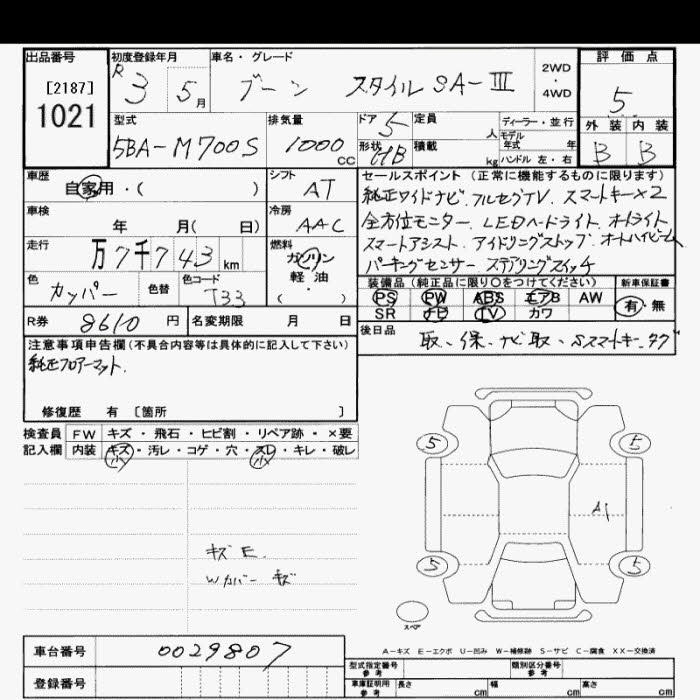 出品番号 初度登録年月 車名・グレード 評価点
[2187] R3 5月 ブーン スタイル SA-Ⅲ 2WD・4WD 5
1021
型式 排気量 ドア 5 定員 人 ディーラー・並行 外装 内装
5BA-M700S 1000cc 形状 HB 積載 kg モデル年式 年 ハンドル 左・右 B B
車歴 自家用・( ) シフト AT
セールスポイント(正常に機能するものに限ります)
純正ワイドナビ. フルセグTV. スマートキー×2
全方位モニター. LEDヘードライト. オートライト
スマートアシスト. アイドリングストップ. オートハイビーム
パーキングセンサー ステアリングスイッチ
車検 年 月( 日) 冷房 AAC
走行 万7千743km 燃料 ガソリン 軽油・( )
色 カッパー 色替 色コード T33
装備品(純正品に限り○をつけてください) 新車保証書
PS PW ABS エアB AW 有・無
SR ナビ TV カワ
R券 8610円 名変期限 月 日
後日品 取、保、ナビ取、Sスマートキー、タグ
注意事項申告欄(不具合内容等は具体的に記入して下さい)
純正フロアーマット.
修復歴 有 [箇所 ]
検査員 FW キズ・飛石・ヒビ割・リペア跡・×要
記入欄 内装 キズ・汚レ・コゲ・穴・スレ・キレ・破レ
小 小
5 5
A1
キズ E.
Wカバー キズ
5 5
スペア
A-キズ E-エクボ U-凹み W-補修跡 S-サビ C-腐食 XX-交換済
車台番号 0029807
型式指定番号 参考 類別区分番号 参考
登録番号
車庫証明用 参考 長さ cm 幅 cm 高さ cm